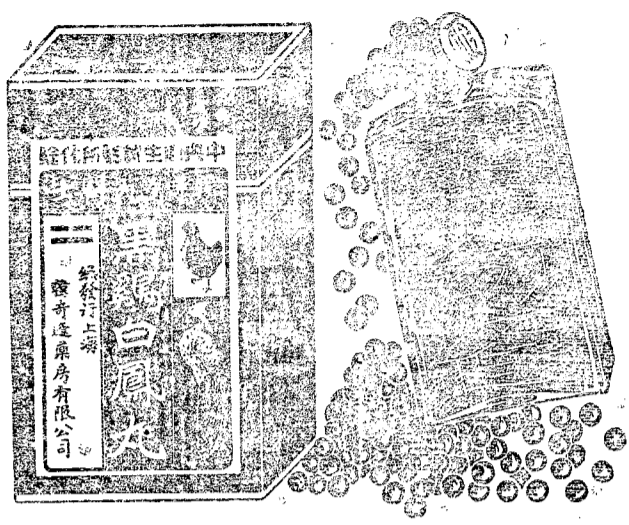 中央衛生試驗所化驗
烏鷄白鳳丸
總發行上海
韓奇逢藥房有限公司